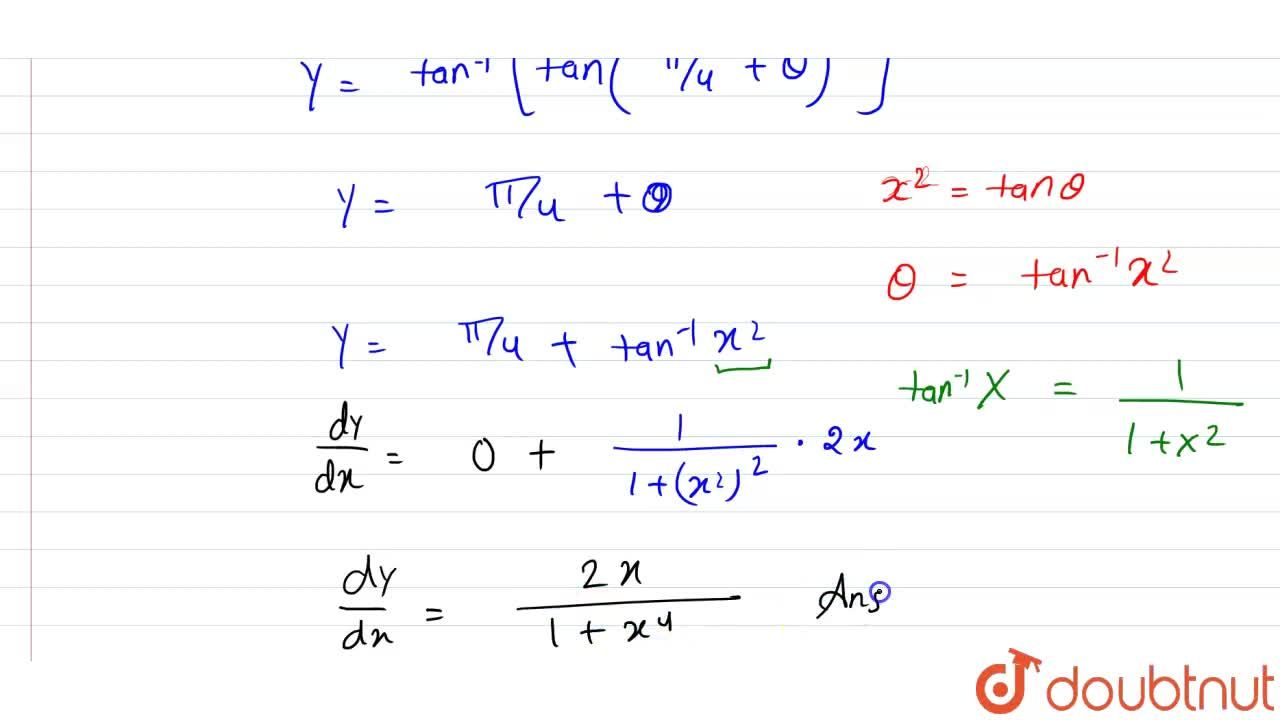 y = tan⁻¹ [ tan( π/4 + θ) ]
y = π/4 + θ
x² = tanθ
θ = tan⁻¹ x²
y = π/4 + tan⁻¹ x²
tan⁻¹ X = 1/(1 + x²)
dy/dx = 0 + 1/(1+(x²)²) · 2x
dy/dx = 2x/(1 + x⁴) Ans
doubtnut